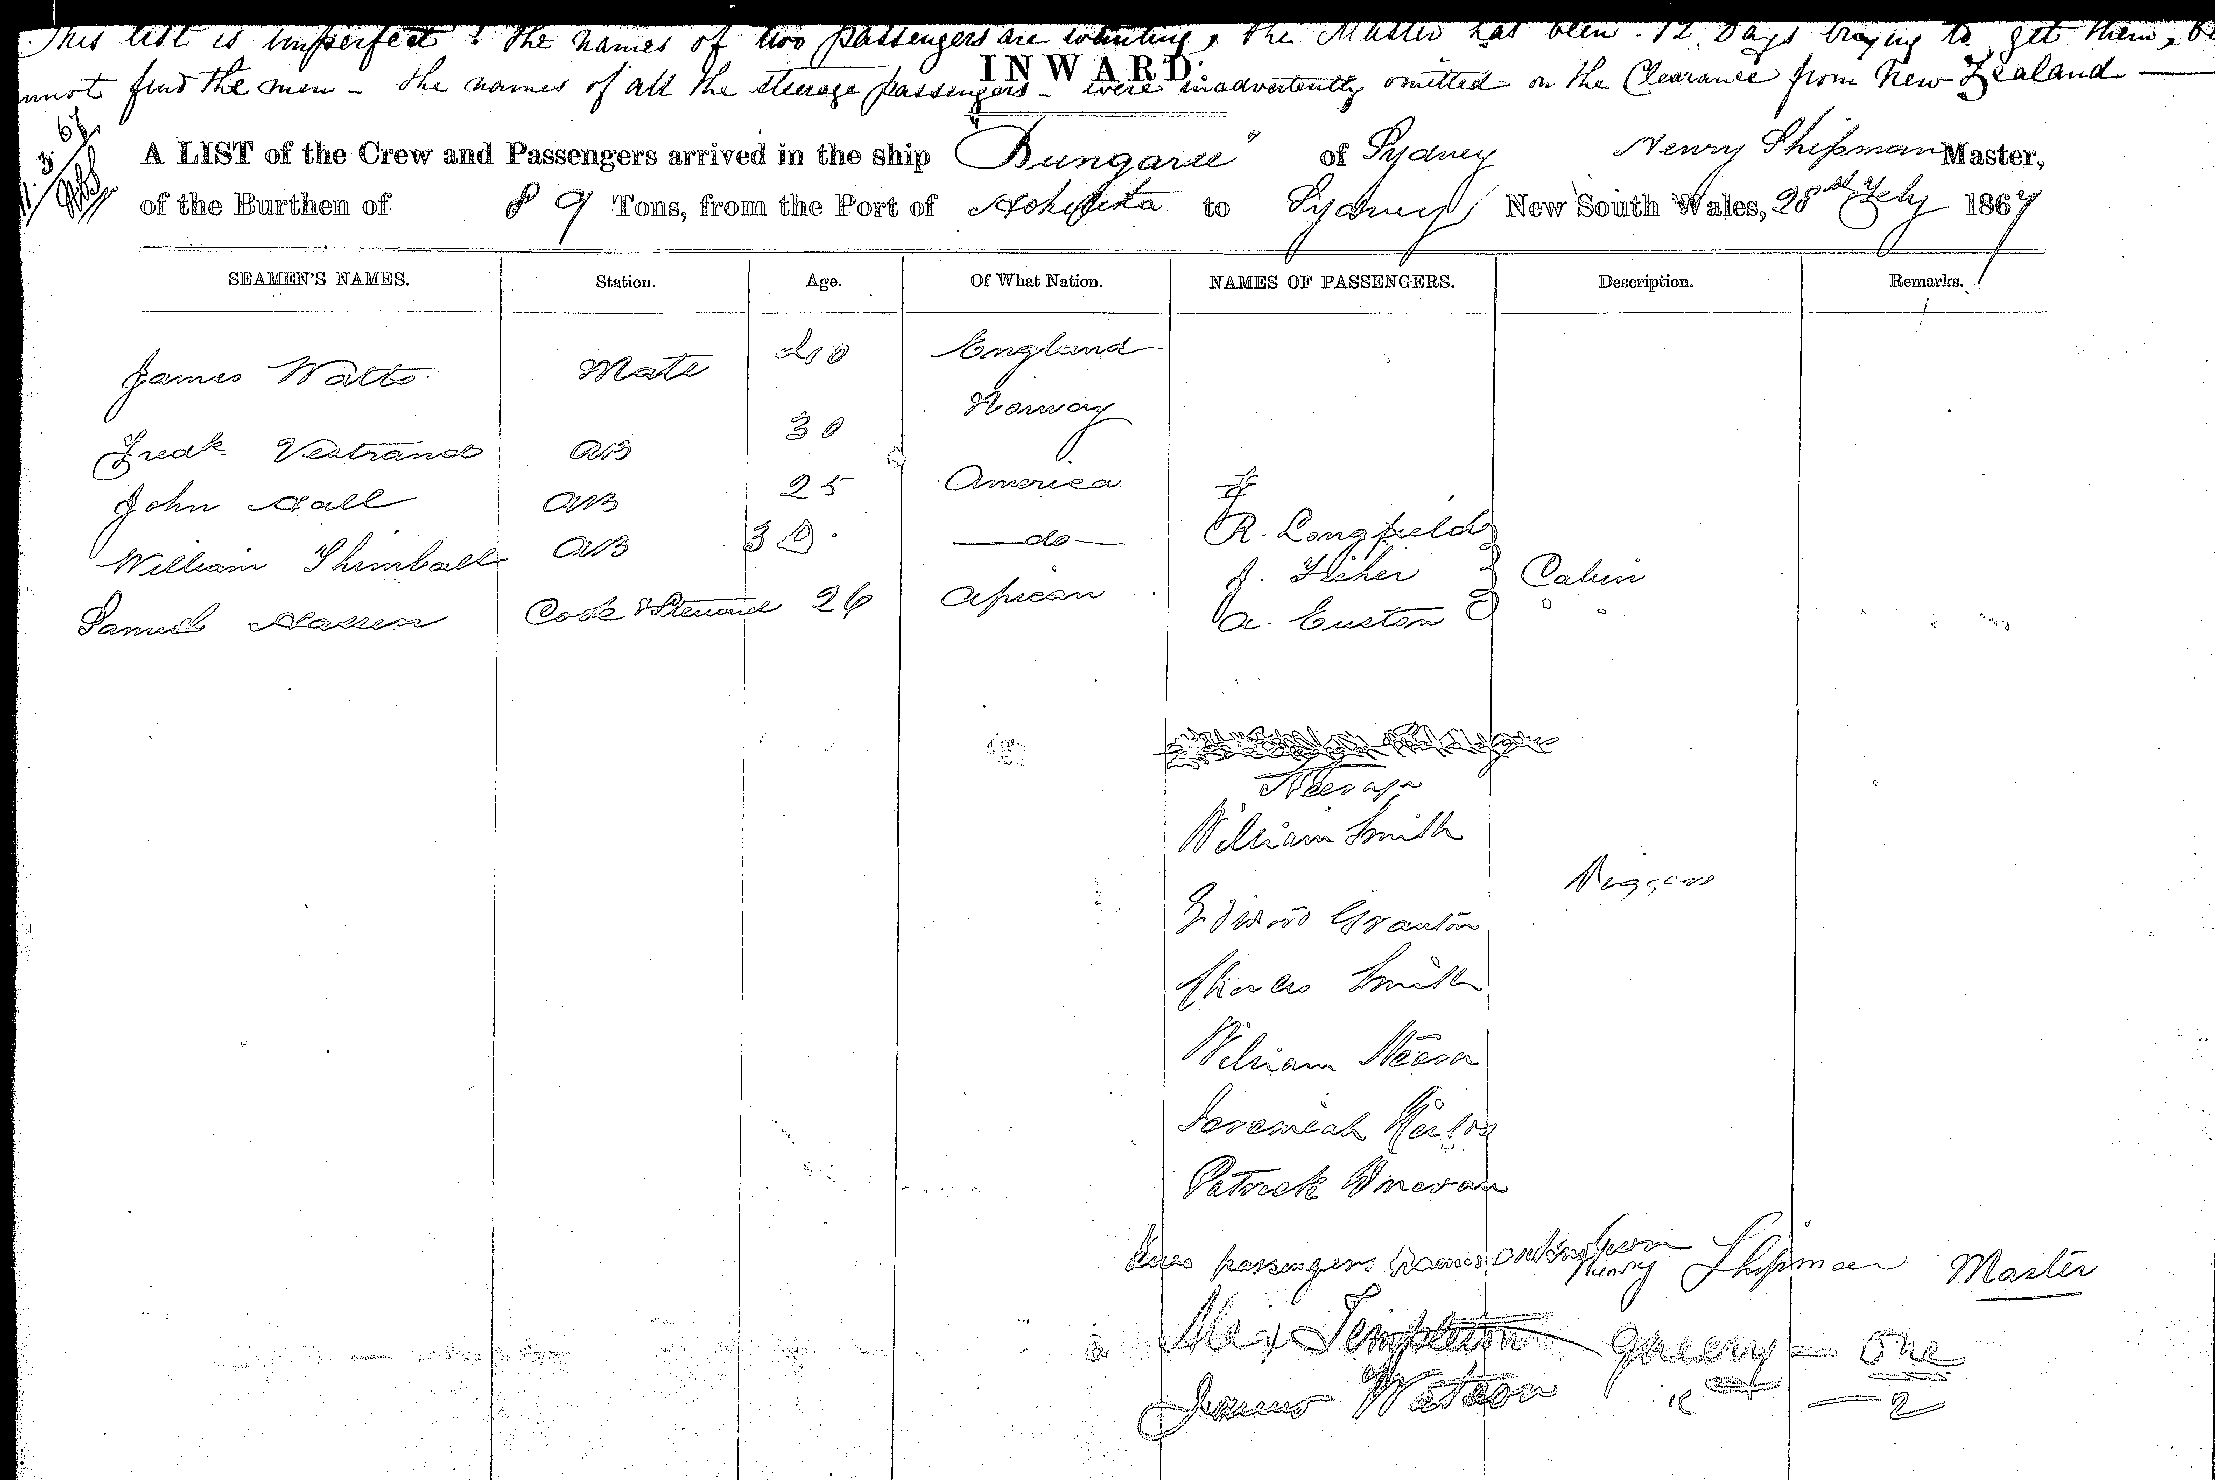 This list is imperfect: the names of two passengers are wanting, the Master has been 12 days trying to get them, b
nnot find the men - the names of all the steerage passengers - were inadvertently omitted on the Clearance from New Zealand
INWARD.
A LIST of the Crew and Passengers arrived in the ship "Bungaree" of Sydney Henry Shipman Master,
of the Burthen of 89 Tons, from the Port of Hokitika to Sydney New South Wales, 28th Feby 1867
SEAMEN'S NAMES. Station. Age. Of What Nation. NAMES OF PASSENGERS. Description. Remarks.
James Watts Mate England
Fredk Vestrand AB 30 Norway
John Hall AB 25 America
William Thimball AB 30 -do- R. Longfield
J. Fisher Cabin
Samuel Cook & Steward 26 African A. Euston
Steerage
William Smith
Diggers
Edward Granton
Charles Smith
William
Jeremiah
Patrick Donevan
passengers names Henry Shipman Master
Alex Templeton - One
James Watson " - 2